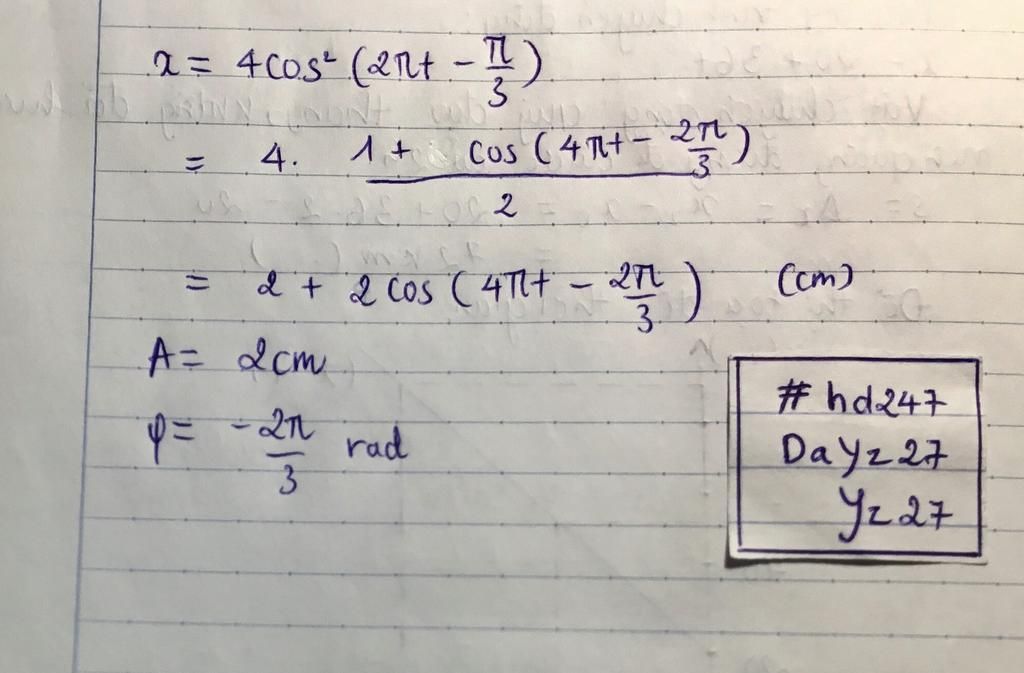 x = 4cos² (2πt - π/3)
= 4. 1 + cos (4πt - 2π/3) / 2
= 2 + 2 cos (4πt - 2π/3) (cm)
A = 2cm
φ = -2π/3 rad
# hd247
DaYz27
Yz27